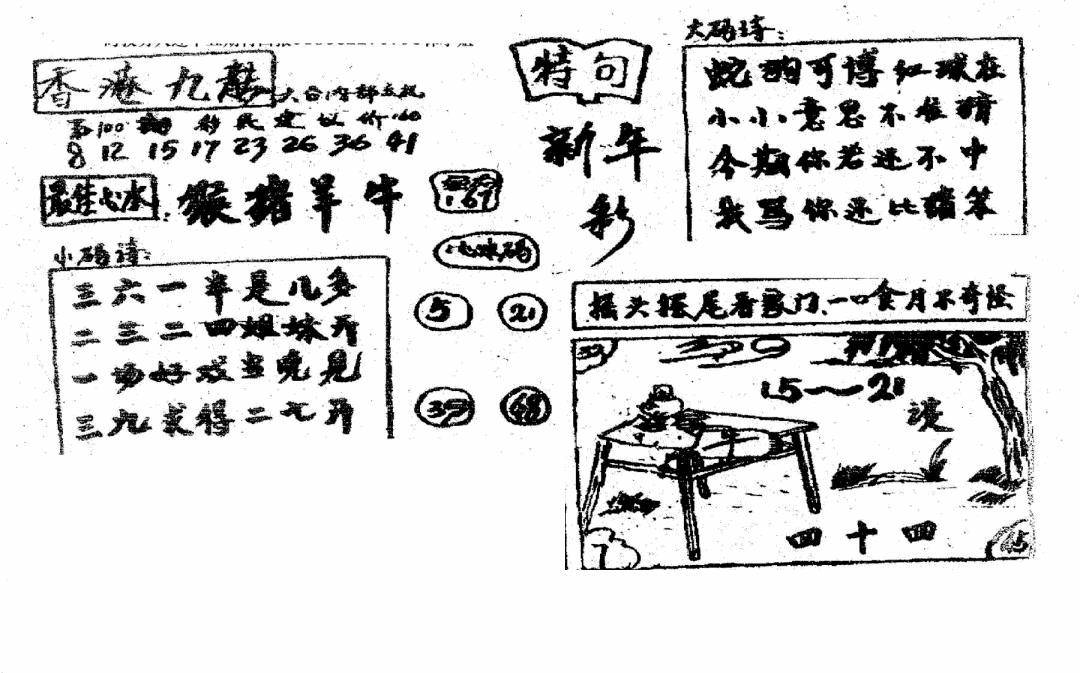 香港九龍
六合内部
第100
8 12 15 17 23 26 36 41
最佳心水
猴猪羊牛
1.67
心水码
5 21
39 48
小码诗:
三六一半是几多
二三二四姐妹开
一场好戏当晚見
三九求得二七开
特句
新年
彩
大码诗:
蛇狗可博红球在
小小意思不难猜
今期你若还不中
我骂你还比猪笨
摇头摆尾看家门、一口食月不奇怪
15～21
四十四
7
45